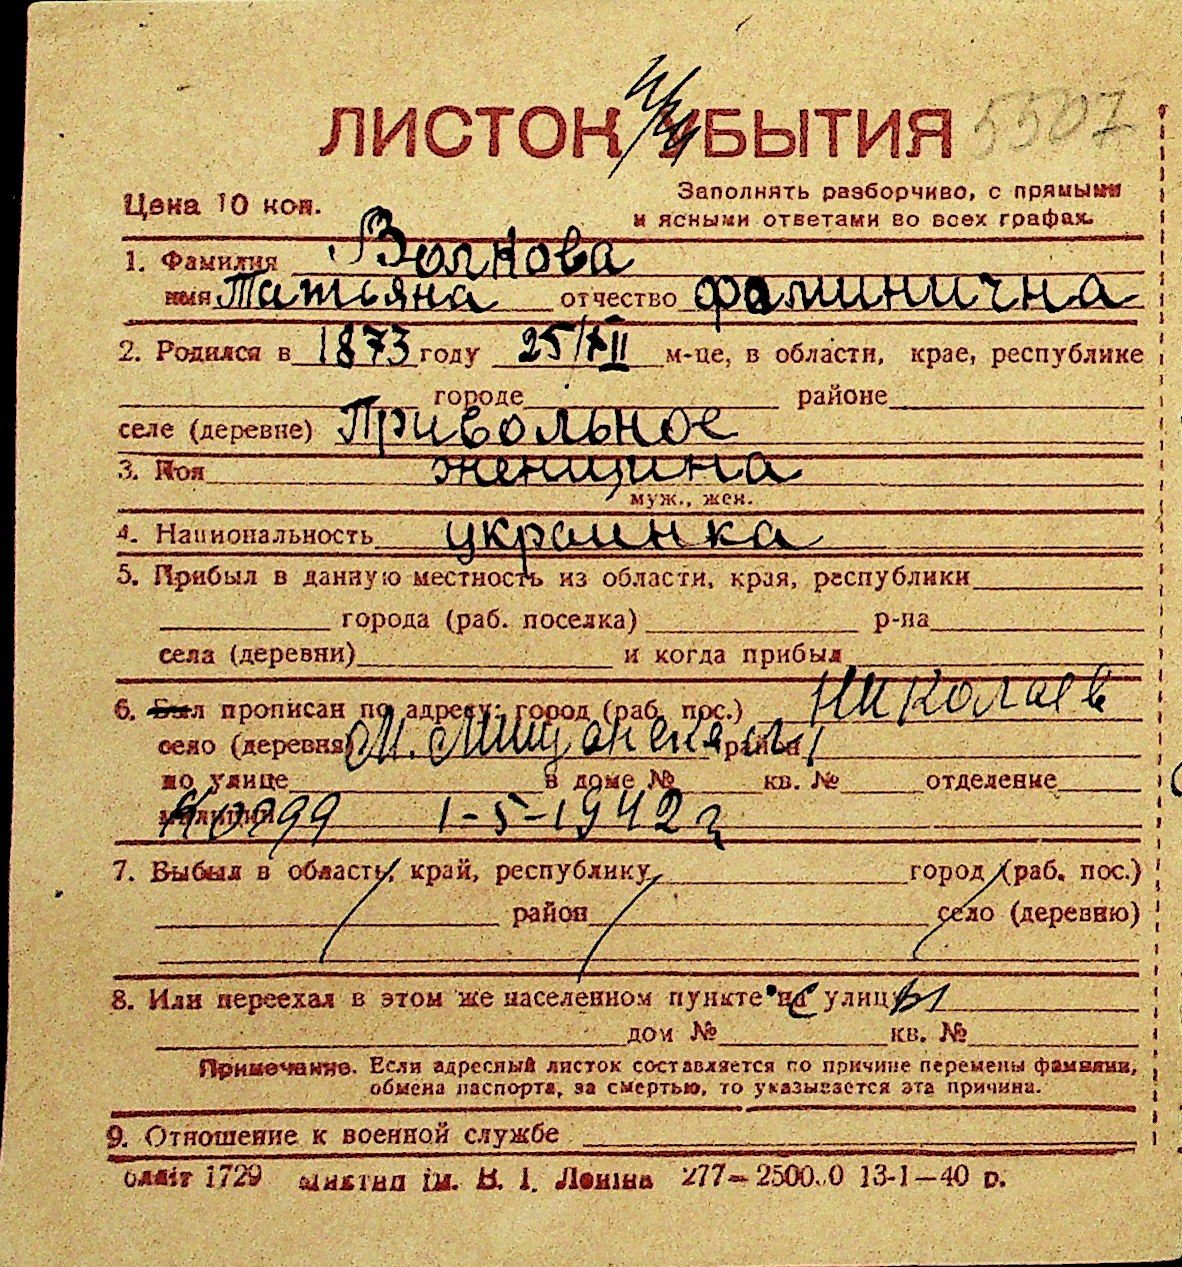 ЛИСТОК УБЫТИЯ 5507
Цена 10 коп.
Заполнять разборчиво, с прямыми
и ясными ответами во всех графах.
1. Фамилия Волкова
имя Татьяна отчество Фоминична
2. Родился в 1873 году 25/XII м-це, в области, крае, республике
городе районе
селе (деревне) Привольное
3. Пол женщина
муж., жен.
4. Национальность украинка
5. Прибыл в данную местность из области, края, республики
города (раб. поселка) р-на
села (деревни) и когда прибыл
6. Был прописан по адресу: город (раб. пос.) Николаев
село (деревня) район
по улице в доме № кв. № отделение
милиции 1-5-1942 г
7. Выбыл в область, край, республику город (раб. пос.)
район село (деревню)
8. Или переехал в этом же населенном пункте на с улицы
дом № кв. №
Примечание. Если адресный листок составляется по причине перемены фамилии,
обмена паспорта, за смертью, то указывается эта причина.
9. Отношение к военной службе
1729 ім. В. І. Леніна 277—2500.0 13-1—40 р.